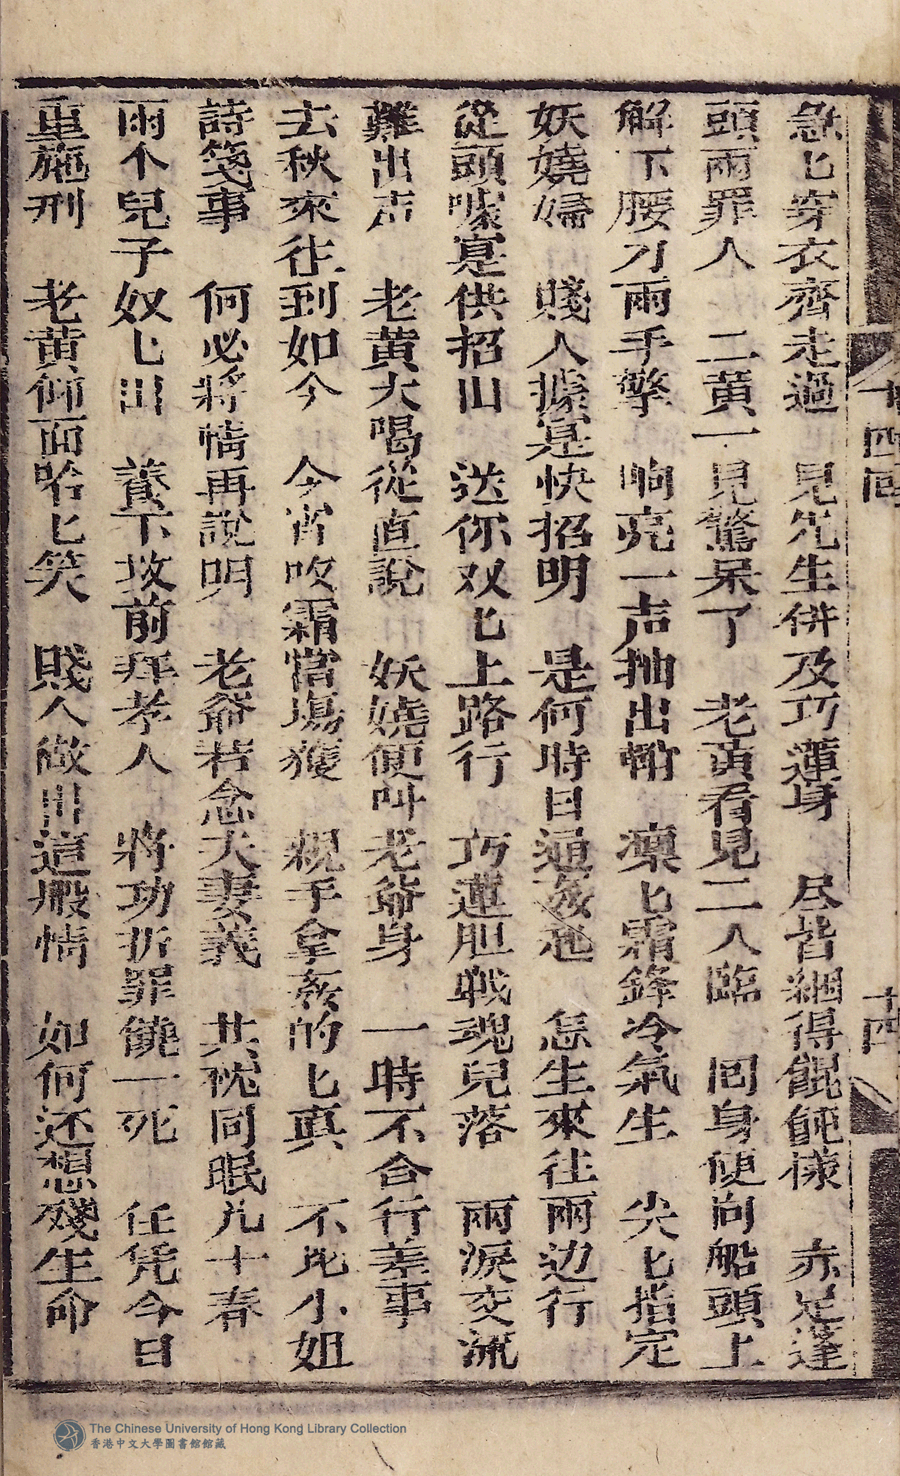 急匕穿衣齊走過　見先生併及巧蓮身　尽皆綑得餛飩樣　赤足蓬
頭兩罪人　二黄一見驚呆了　老黄看見二人臨　囘身便向船頭上
解下腰刀兩手擎　响亮一声抽出鞘　凛匕霜鋒冷氣生　尖匕指定
妖嬈婦　賤人據寔快招明　是何時日通姦起　怎生來往兩边行
從頭㨿寔供招出　送你双匕上路行　巧蓮胆戰魂兒落　兩淚交流
難出声　老黄大喝從直說　妖嬈便叫老爺身　一時不合行差事
去秋來往到如今　今宵吹霜當塲獲　親手拿姦的匕真　不比小姐
詩箋事　何必將情再說明　老爺若念夫妻義　共枕同眠九十春
兩个兒子奴匕出　養下坟前拜孝人　將功折罪饒一死　任凭今日
重施刑　老黄仰面哈匕笑　賤人做出這般情　如何还想殘生命
十四囘
十四
The Chinese University of Hong Kong Library Collection
香港中文大學圖書館館藏